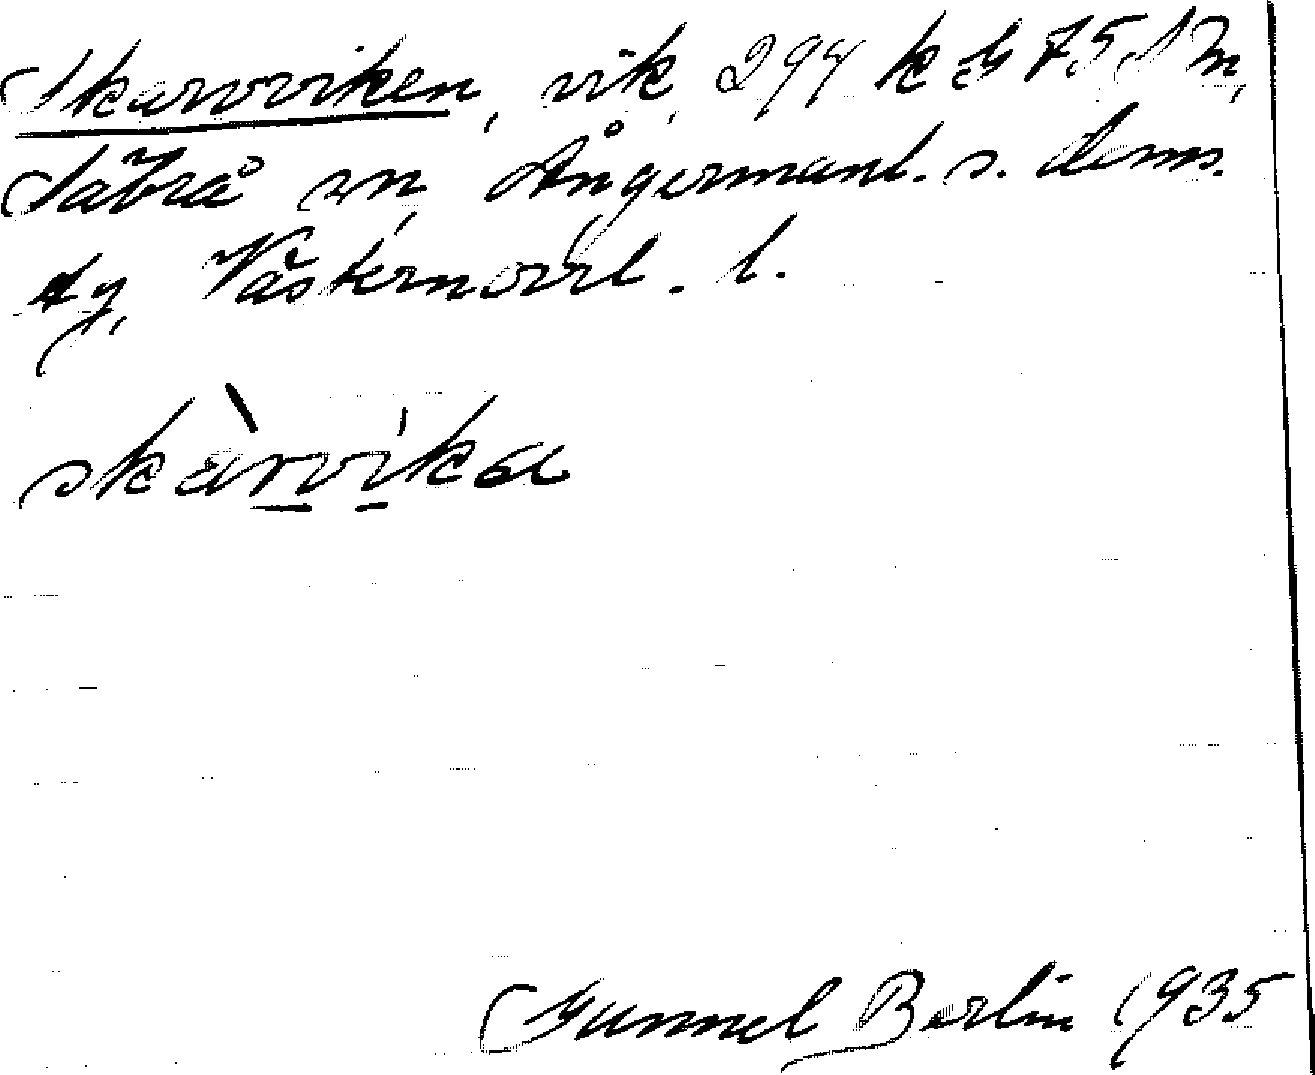 Skarvviken, vik, 294 k G 75 S m,
Säbrå sn, Ångermanl. s. doms.
dg, Västernorrl. l.
skàrvíka
Gunnel Berlin 1935